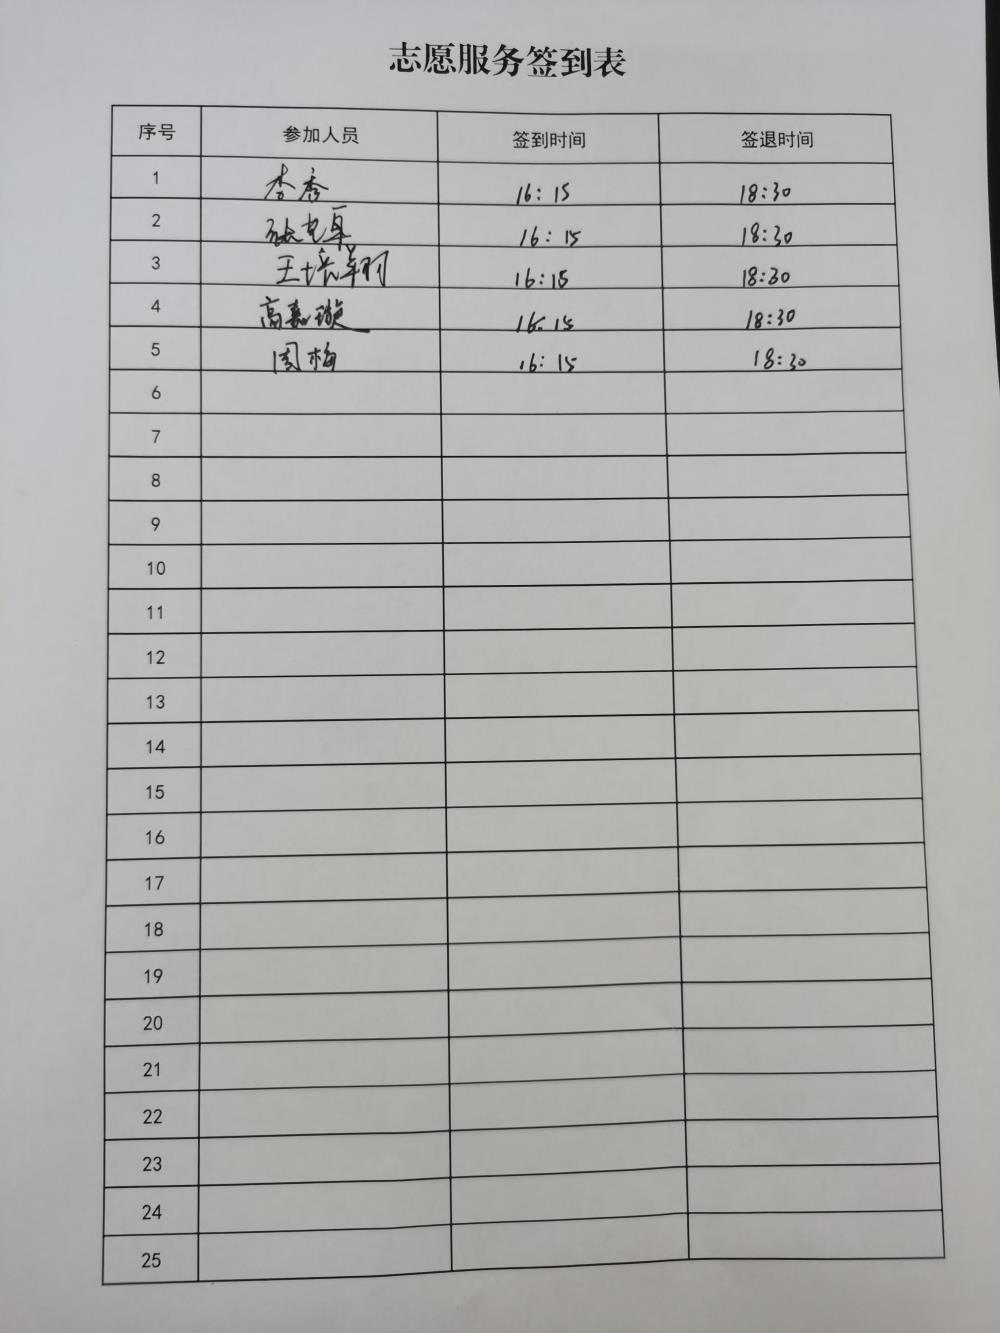 志愿服务签到表
序号 参加人员 签到时间 签退时间
1 李秀 16:15 18:30
2 16:15 18:30
3 王培 16:15 18:30
4 高嘉璇 16:15 18:30
5 周梅 16:15 18:30
6
7
8
9
10
11
12
13
14
15
16
17
18
19
20
21
22
23
24
25